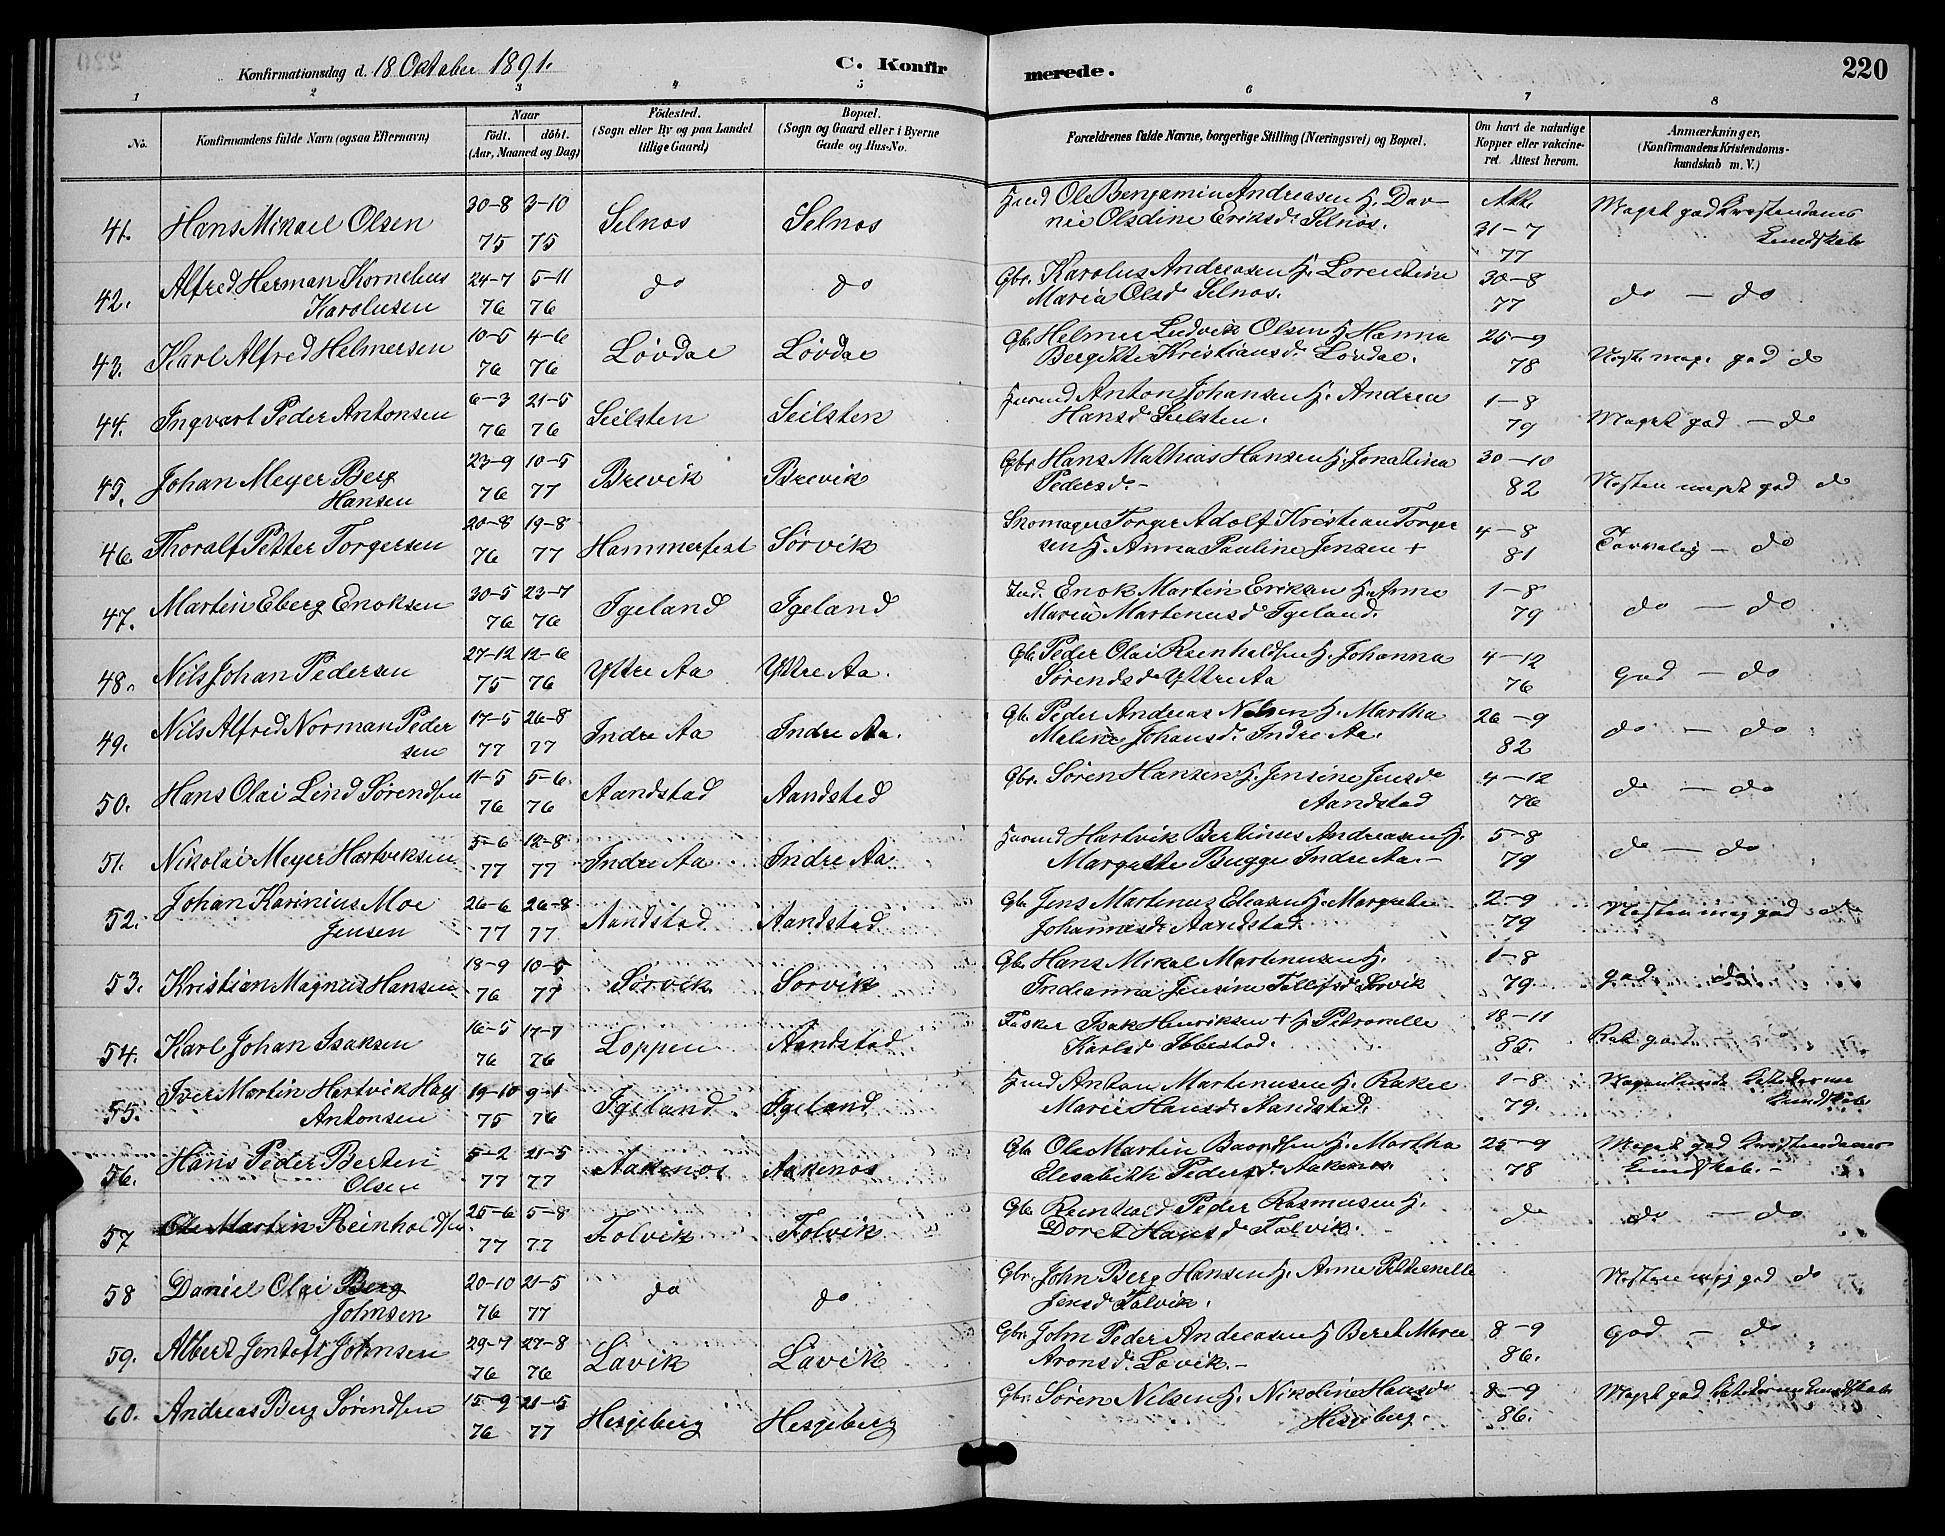 Konfirmationsdag d. 18 October 1891.
C. Konfirmerede.
220
1 2 3 4 5 6 7 8
No.
Konfirmandens fulde Navn (ogsaa Efternavn)
Naar
født. døbt.
(Aar, Maaned og Dag)
Födested.
(Sogn eller By og paa Landet
tillige Gaard)
Bopæl.
(Sogn og Gaard eller i Byerne
Gade og Hus-No.
Forældrenes fulde Navne, borgerlige Stilling (Næringsvei) og Bopæl.
Om havt de naturlige
Kopper eller vakcine-
ret Attest herom.
Anmærkninger,
(Konfirmandens Kristendoms-
kundskab m. V.)
41. Hans Mikael Olsen 30-8 75 3-10 75 Selnos Selnos Ole Benjamin Andreasen H. Dav-
nie Olsdine Eriksd. Selnos. Att. 31-7 77 Maget god Kristendoms
Kundskab
42. Alfred Herman Kornelius
Karolusen 24-7 76 5-11 76 do do Gbr. Karolus Andreasen H. Lorentine
Maria Olsd Selnos. 30-8 77 do - do
43. Karl Alfred Helmersen 10-5 76 4-6 76 Løvdal Løvdal Gb. Helmer Ludvik Olsen H. Hanna
Bergitte Kristiansd. Løvdal. 25-9 78 god do
44. Ingvart Peder Antonsen 6-3 76 21-5 76 Seilsten Seilsten Anton Johansen H. Andrea
Hansd Seilsten. 1-8 79 Maget god - do
45. Johan Meyer Berg
Hansen 23-9 76 10-5 77 Brevik Brevik Gbr Hans Mathias Hansen H. Jonetina
Pedersd. - 30-10 82 Nesten maget god do
46. Thoralf Petter Torgersen 20-8 76 19-8 77 Hammerfest Sørvik Skomager Torger Adolf Kristian Torger
sen H. Anna Pauline Jensen + 4-8 81 Tarvelig - do
47. Martin Eberg Enoksen 30-5 76 23-7 76 Igeland Igeland Ind. Enok Martin Eriksen H. Anne
Maria Martinusd Igeland. 1-8 79 do - do
48. Nils Johan Pedersen 27-12 75 12-6 76 Yttre Aa Yttre Aa. Gb. Peder Olai Reinholdsen H. Johanna
Sørensd. Yttre Aa 4-12 76 god - do
49. Nils Alfred Norman Peder
sen 17-5 77 26-8 77 Indre Aa Indre Aa. Gb. Peder Andreas Nilsen H. Martha
Meline Johansd. Indre Aa. 26-9 82 do - do
50. Hans Olai Lind Sørendsen 11-5 76 5-6 76 Aandstad Aandstad Gbr. Søren Hansen H. Jensine Jensd
Aandstad 4-12 76 do - do
51. Nikolai Meyer Hartviksen 5-6 77 12-8 77 Indre Aa Indre Aa Hartvik Bertinus Andreasen H.
Margrethe Bugge Indre Aa. - 5-8 79 do - do
52. Johan Karinius Moe
Jensen 26-6 77 26-8 77 Aandstad Aandstad Gb. Jens Martinus Eliasen H. Margrete
Johannesd. Aandstad 2-9 79 Nesten meg god do
53. Kristian Magnus Hansen 18-9 76 10-5 77 Sørvik Sorvik Gb. Hans Mikal Martinusen H.
Indianna Jensine Tellefsd Sørvik 1-8 79. god do
54. Karl Johan Isaksen 16-5 76 17-7 76 Loppen Aandstad Fisker Isak Henriksen + H. Petronelle
Karlsd Ibbestad. 18-11 85. god
55. Iver Martin Hartvik Hag
Antonsen 19-10 75 9-1 76 Igeland Igeland Anton Martinusen H. Rakel
Marie Hansd. Aandstad. 1-8 79.
Kundskab
56. Hans Peder Berten
Olsen 5-2 77 21-5 77 Aakenos Aakenos Gb. Ole Martin Baardsen H. Martha
Elisabeth Pedersd. Aakenos. 25-9 78 Maget god Kristendoms
kundskab. -
57 Ole Martin Reinholdsen 25-6 77 5-8 77 Tolvik Tolvik Gb. Reinhold Peder Rasmusen H.
Doret Hansd. Tolvik. do do - do
58 Daniel Olai Berg
Johnsen 20-10 76 21-5 77 do do Gbr. John Berg Hansen H. Anne Petronelle
Jensd Tolvik. Nesten meg god do
59. Albert Jentoft Johnsen 29-7 76 27-8 76 Lavik Lavik Gbr. John Peder Andreasen H Beret Marie
Aronsd. Lavik. - 8-9 86. god - do
60. Andreas Berg Sørendsen 15-9 76 21-5 77 Hesjeberg Hesjeberg Gbr. Søren Nilsen H. Nikoline Hansd
Hesjeberg. 8-9 86. Maget god